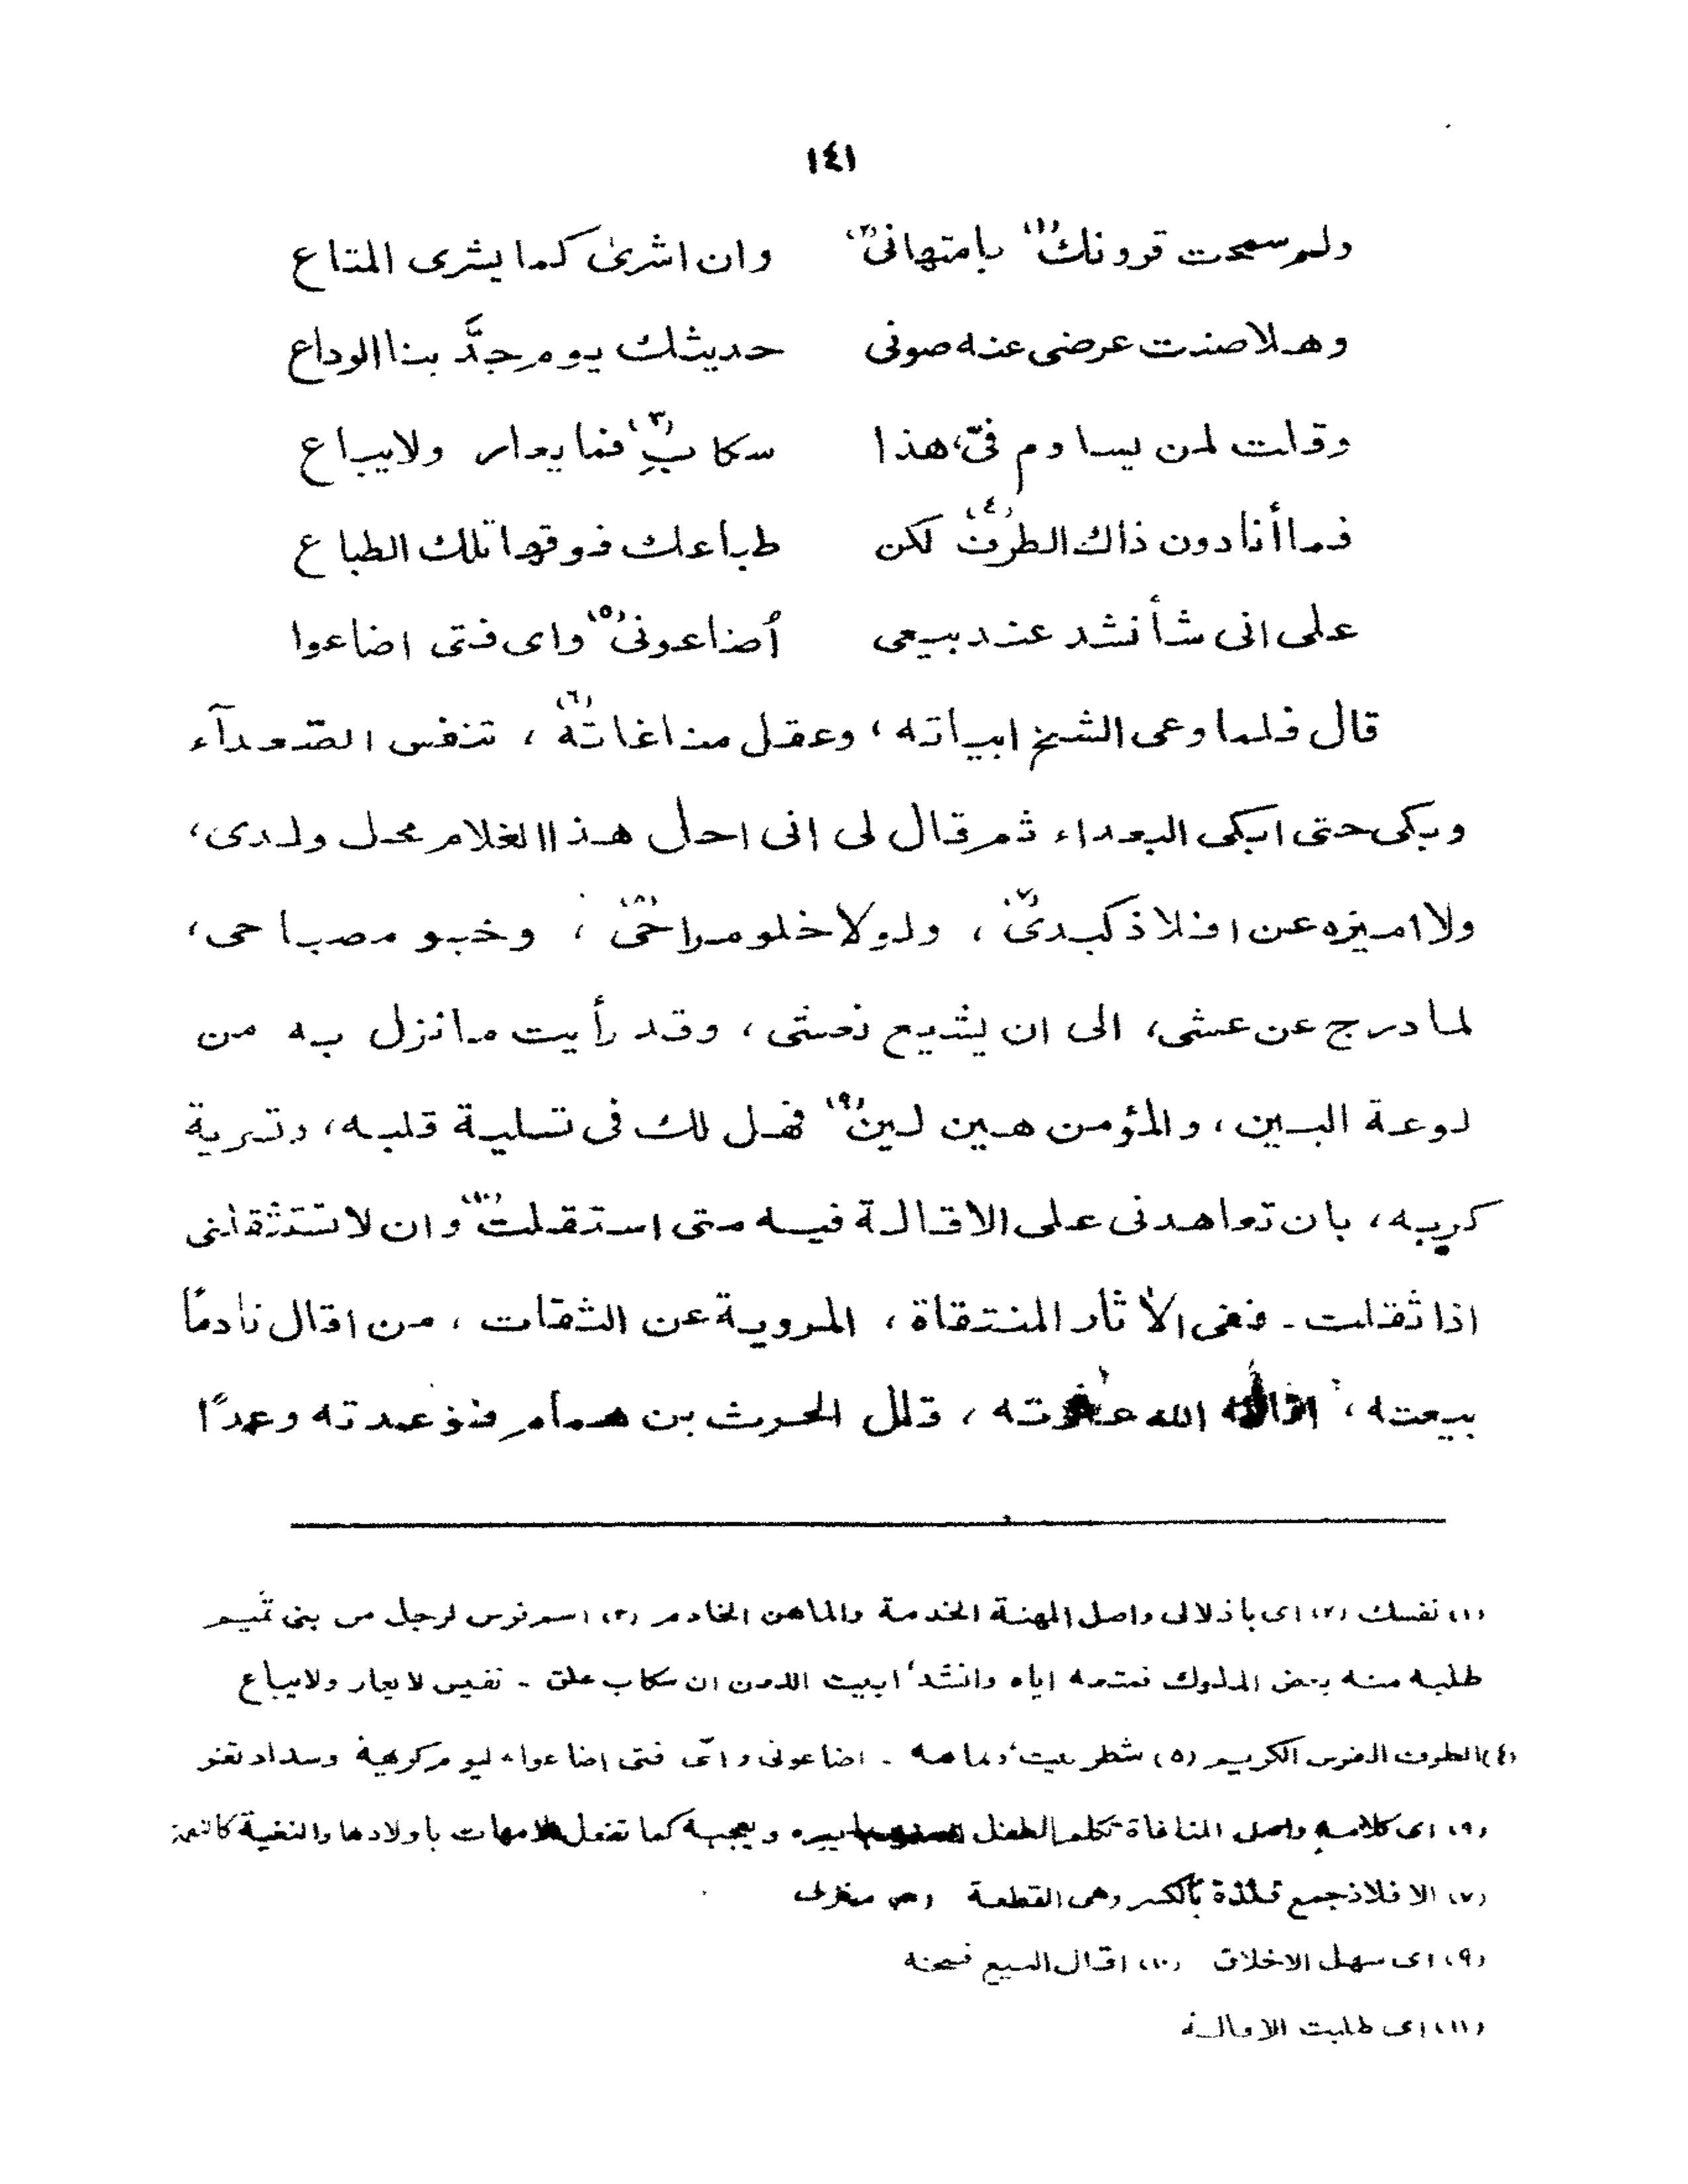 ١٤١
ولم سمحت قرونك (١) بامتهانى (٢) وان اشرى كما يشرى المتاع
وهلا صنت عرضى عنه صونى حديثك يوم جدَّ بنا الوداع
وقلت لمن يساوم فىّ، هذا سكابِ (٣) فما يعار ولايباع
فما أنا دون ذاك الطرف (٤) لكن طباعك فوقها تلك الطباع
على انى سأنشد عند بيعى أضاعونى (٥) واى فتى اضاعوا
قال فلما وعى الشيخ ابياته، وعقل مناغاته (٦)، تنفس الصّعدآء
وبكى حتى ابكى البعداء ثم قال لى انى احل هذا الغلام محل ولدى،
ولا اميزه عن افلاذ كبدى (٧)، ولولا خلو مراحى (٨)، وخبو مصباحى،
لما درج عن عشى، الى ان يشيع نعشى، وقد رأيت ما نزل به من
لوعة البين، والمؤمن هين لين (٩) فهل لك فى تسلية قلبه، وتسرية
كربه، بان تعاهدنى على الاقالة فيه متى استقلت (١٠) وان لا تستثقلنى
اذا ثقلت - ففى الأثار المنتقاة، المروية عن الثقات، من اقال نادمًا
بيعته، اقاله الله عثرته، قال الحرث بن همام فوعدته وعدًا
(١) نفسك (٢) اى باذلالى واصل المهنة الخدمة والماهن الخادم (٣) اسم فرس لرجل من بنى تميم
طلبه منه بعض الملوك فمنعه اياه وانشد ابيت اللعن ان سكاب علق - نفيس لا يعار ولايباع
(٤) الطرف الفرس الكريم (٥) شطر بيت، تمامه - اضاعونى واىّ فتى اضاعوا، ليوم كريهة وسداد ثغر
(٩) اى كلامه واصل المناغاة تكلم الطفل ويعجبه كما تفعل الامهات باولادها والنغية كالنعمة
(٧) الافلاذ جمع فلذة بالكسر وهى القطعة
(٩) اى سهل الاخلاق (١٠) اقال البيع فسخه
(١١) اى طلبت الاقالة